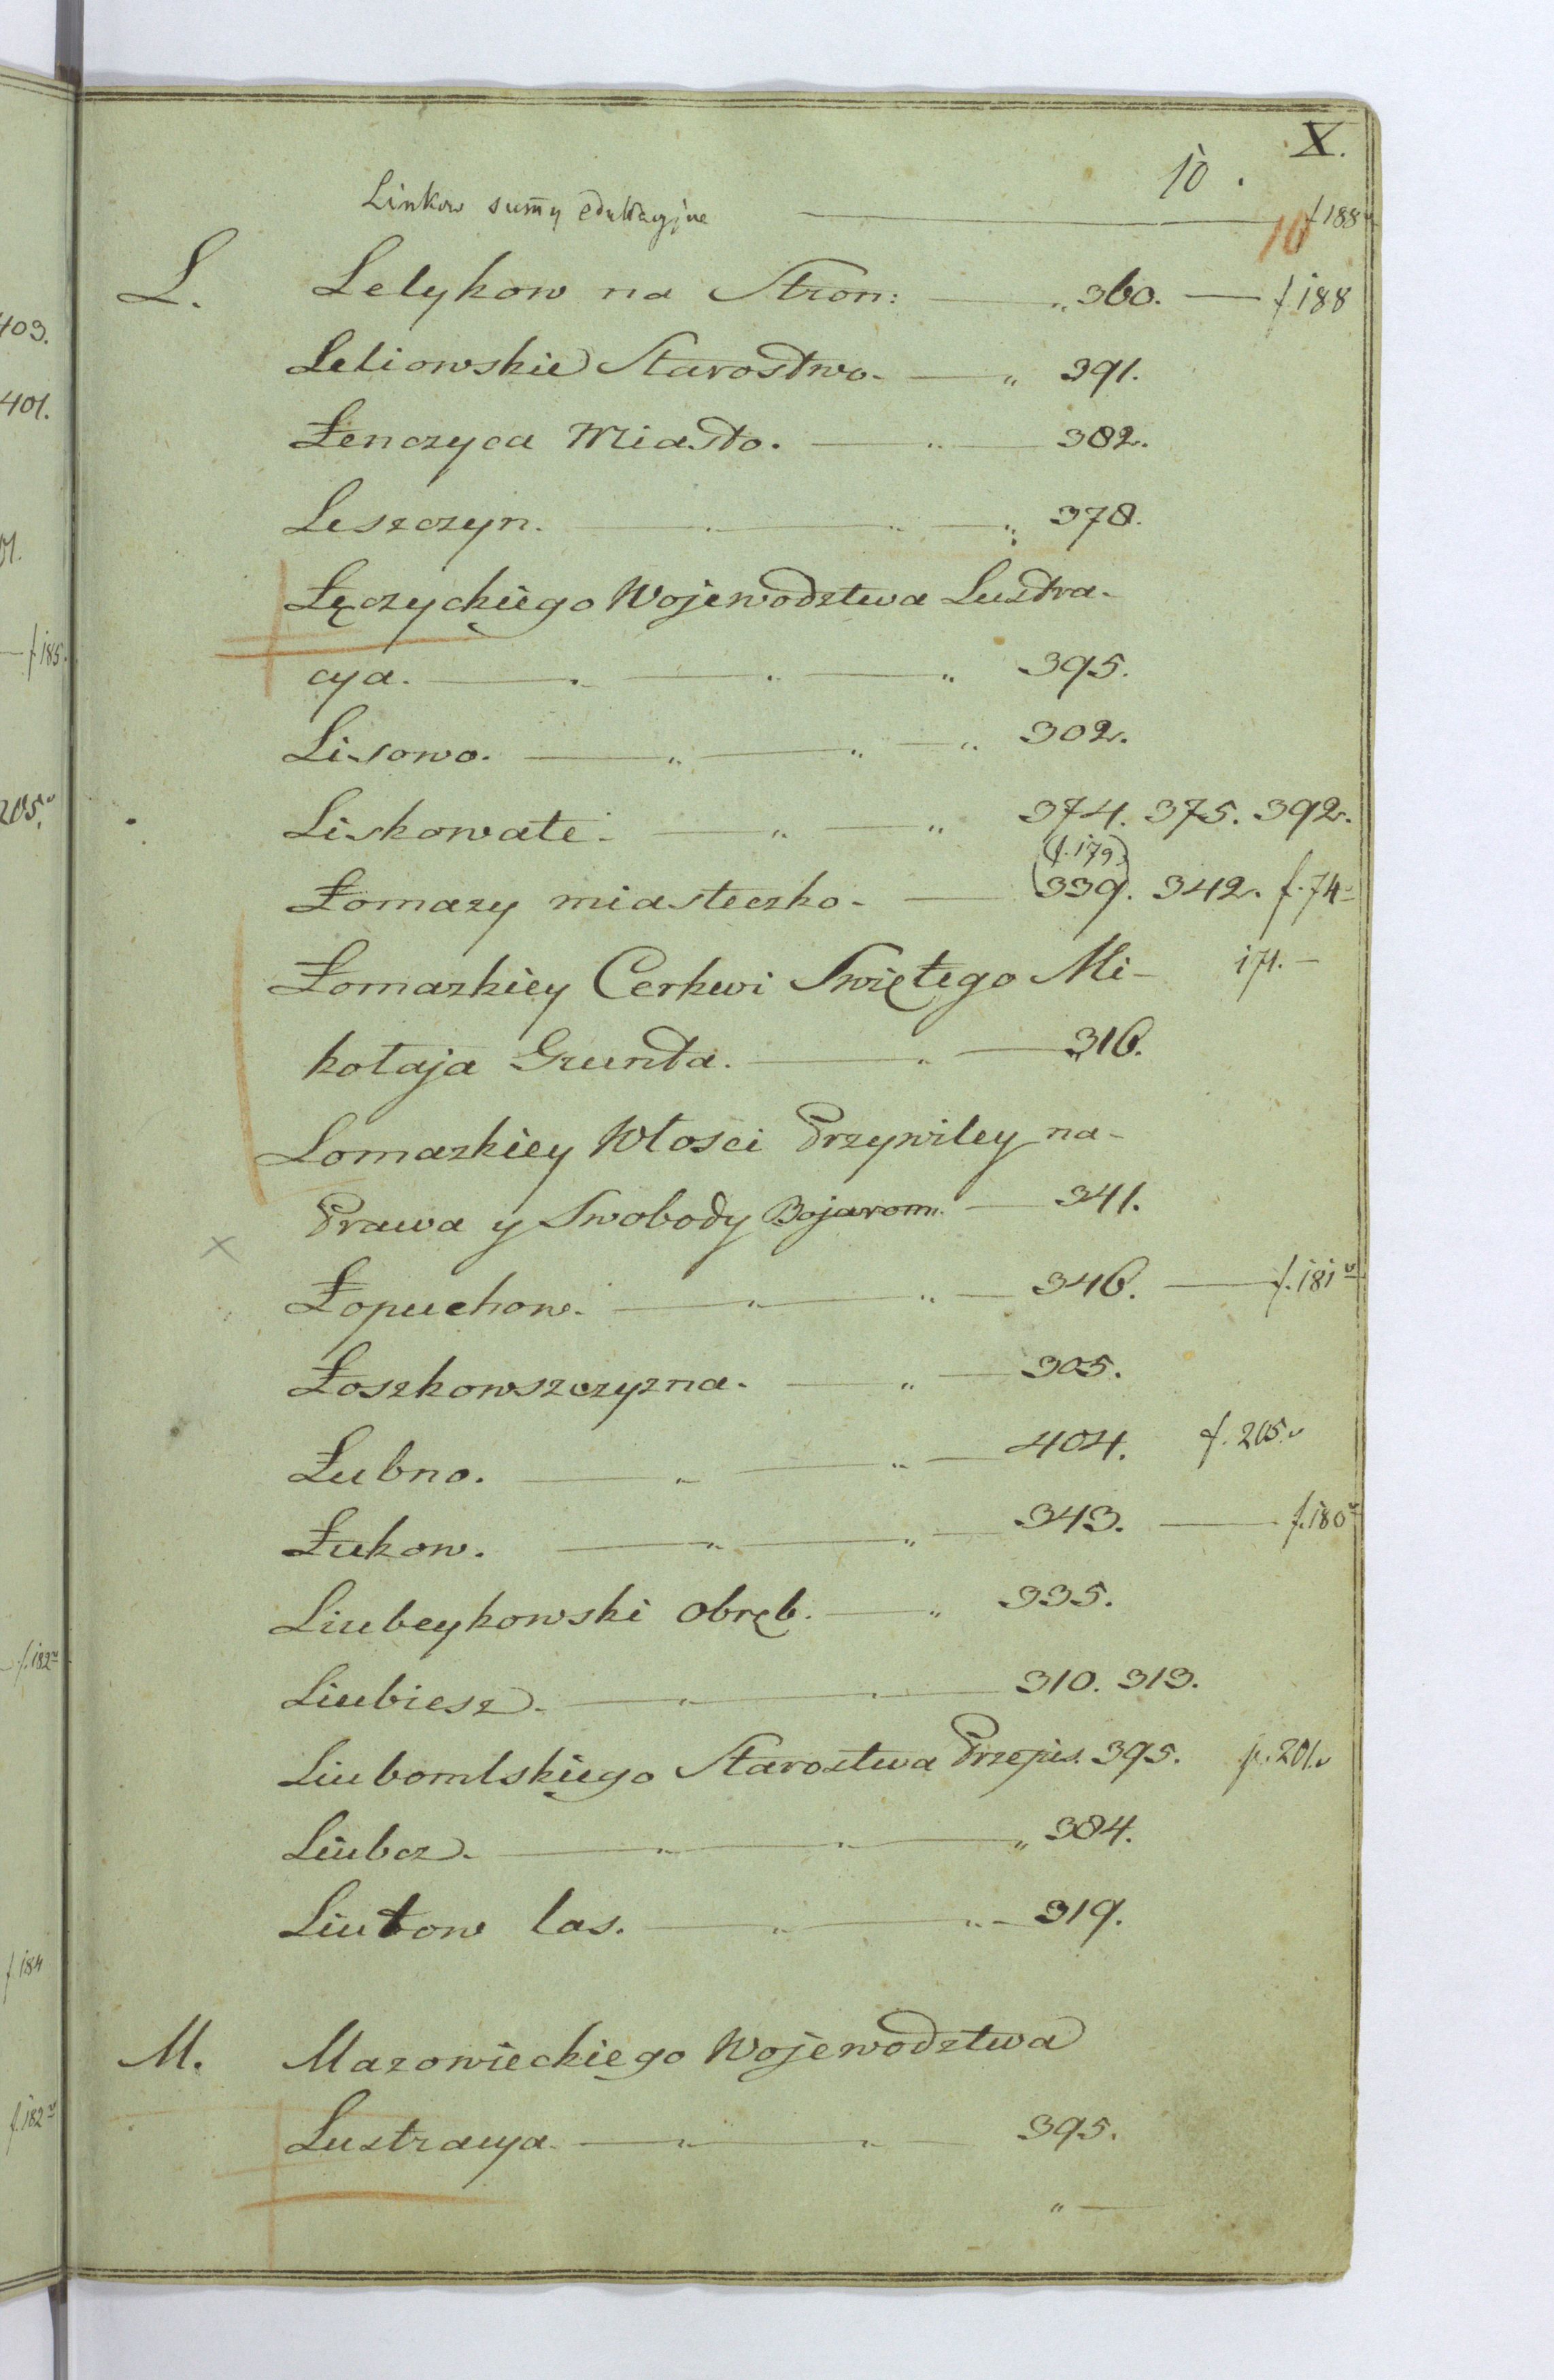 X.
10.
Linkow sum̄y edukacyjne — f 188v
10
L. Lelykow na Stron: — „ 360. — f 188
Leliowskie Starostwo. — „ 391.
Łenczyca Miasto. — „ — 382.
Leszczyn. — „ 378.
Łęczyckiego Wojewodztwa Lustra-
cya. — „ — „ — „ 395.
Lisowo. — „ — „ — „ 302.
Liskowate. — „ — „ 374. 375. 392.
(f. 179)
Łomazy miasteczko. — 339. 342. f. 74v
Łomazkiey Cerkwi Swiętego Mi- 171. -
kołaja Grunta. — „ — 316.
Lomazkiey Włosci Przywiley na-
Prawa y Swobody Bojarom. — 341.
Łopuchow. — „ — „ — 346. — f. 181v
Łoszkowszczyzna. — „ — 305.
Łubno. — „ — „ — 404. f. 205.v
Łukow. — „ — „ — 343. — f. 180v
Liubeykowski obręb. — „ 335.
Liubiesz. — „ — „ — 310. 313.
Liubomlskiego Starostwa Przepis. 395. f. 201.v
Liubcz. — „ — „ — „ 384.
Liutow las. — „ — „ — 319.
M. Mazowieckiego Wojewodztwa
Lustracya. — „ — „ — 395.
„ —
403.
401.
01.
— f 185.
205.v
f. 182v
f 184
f. 182v